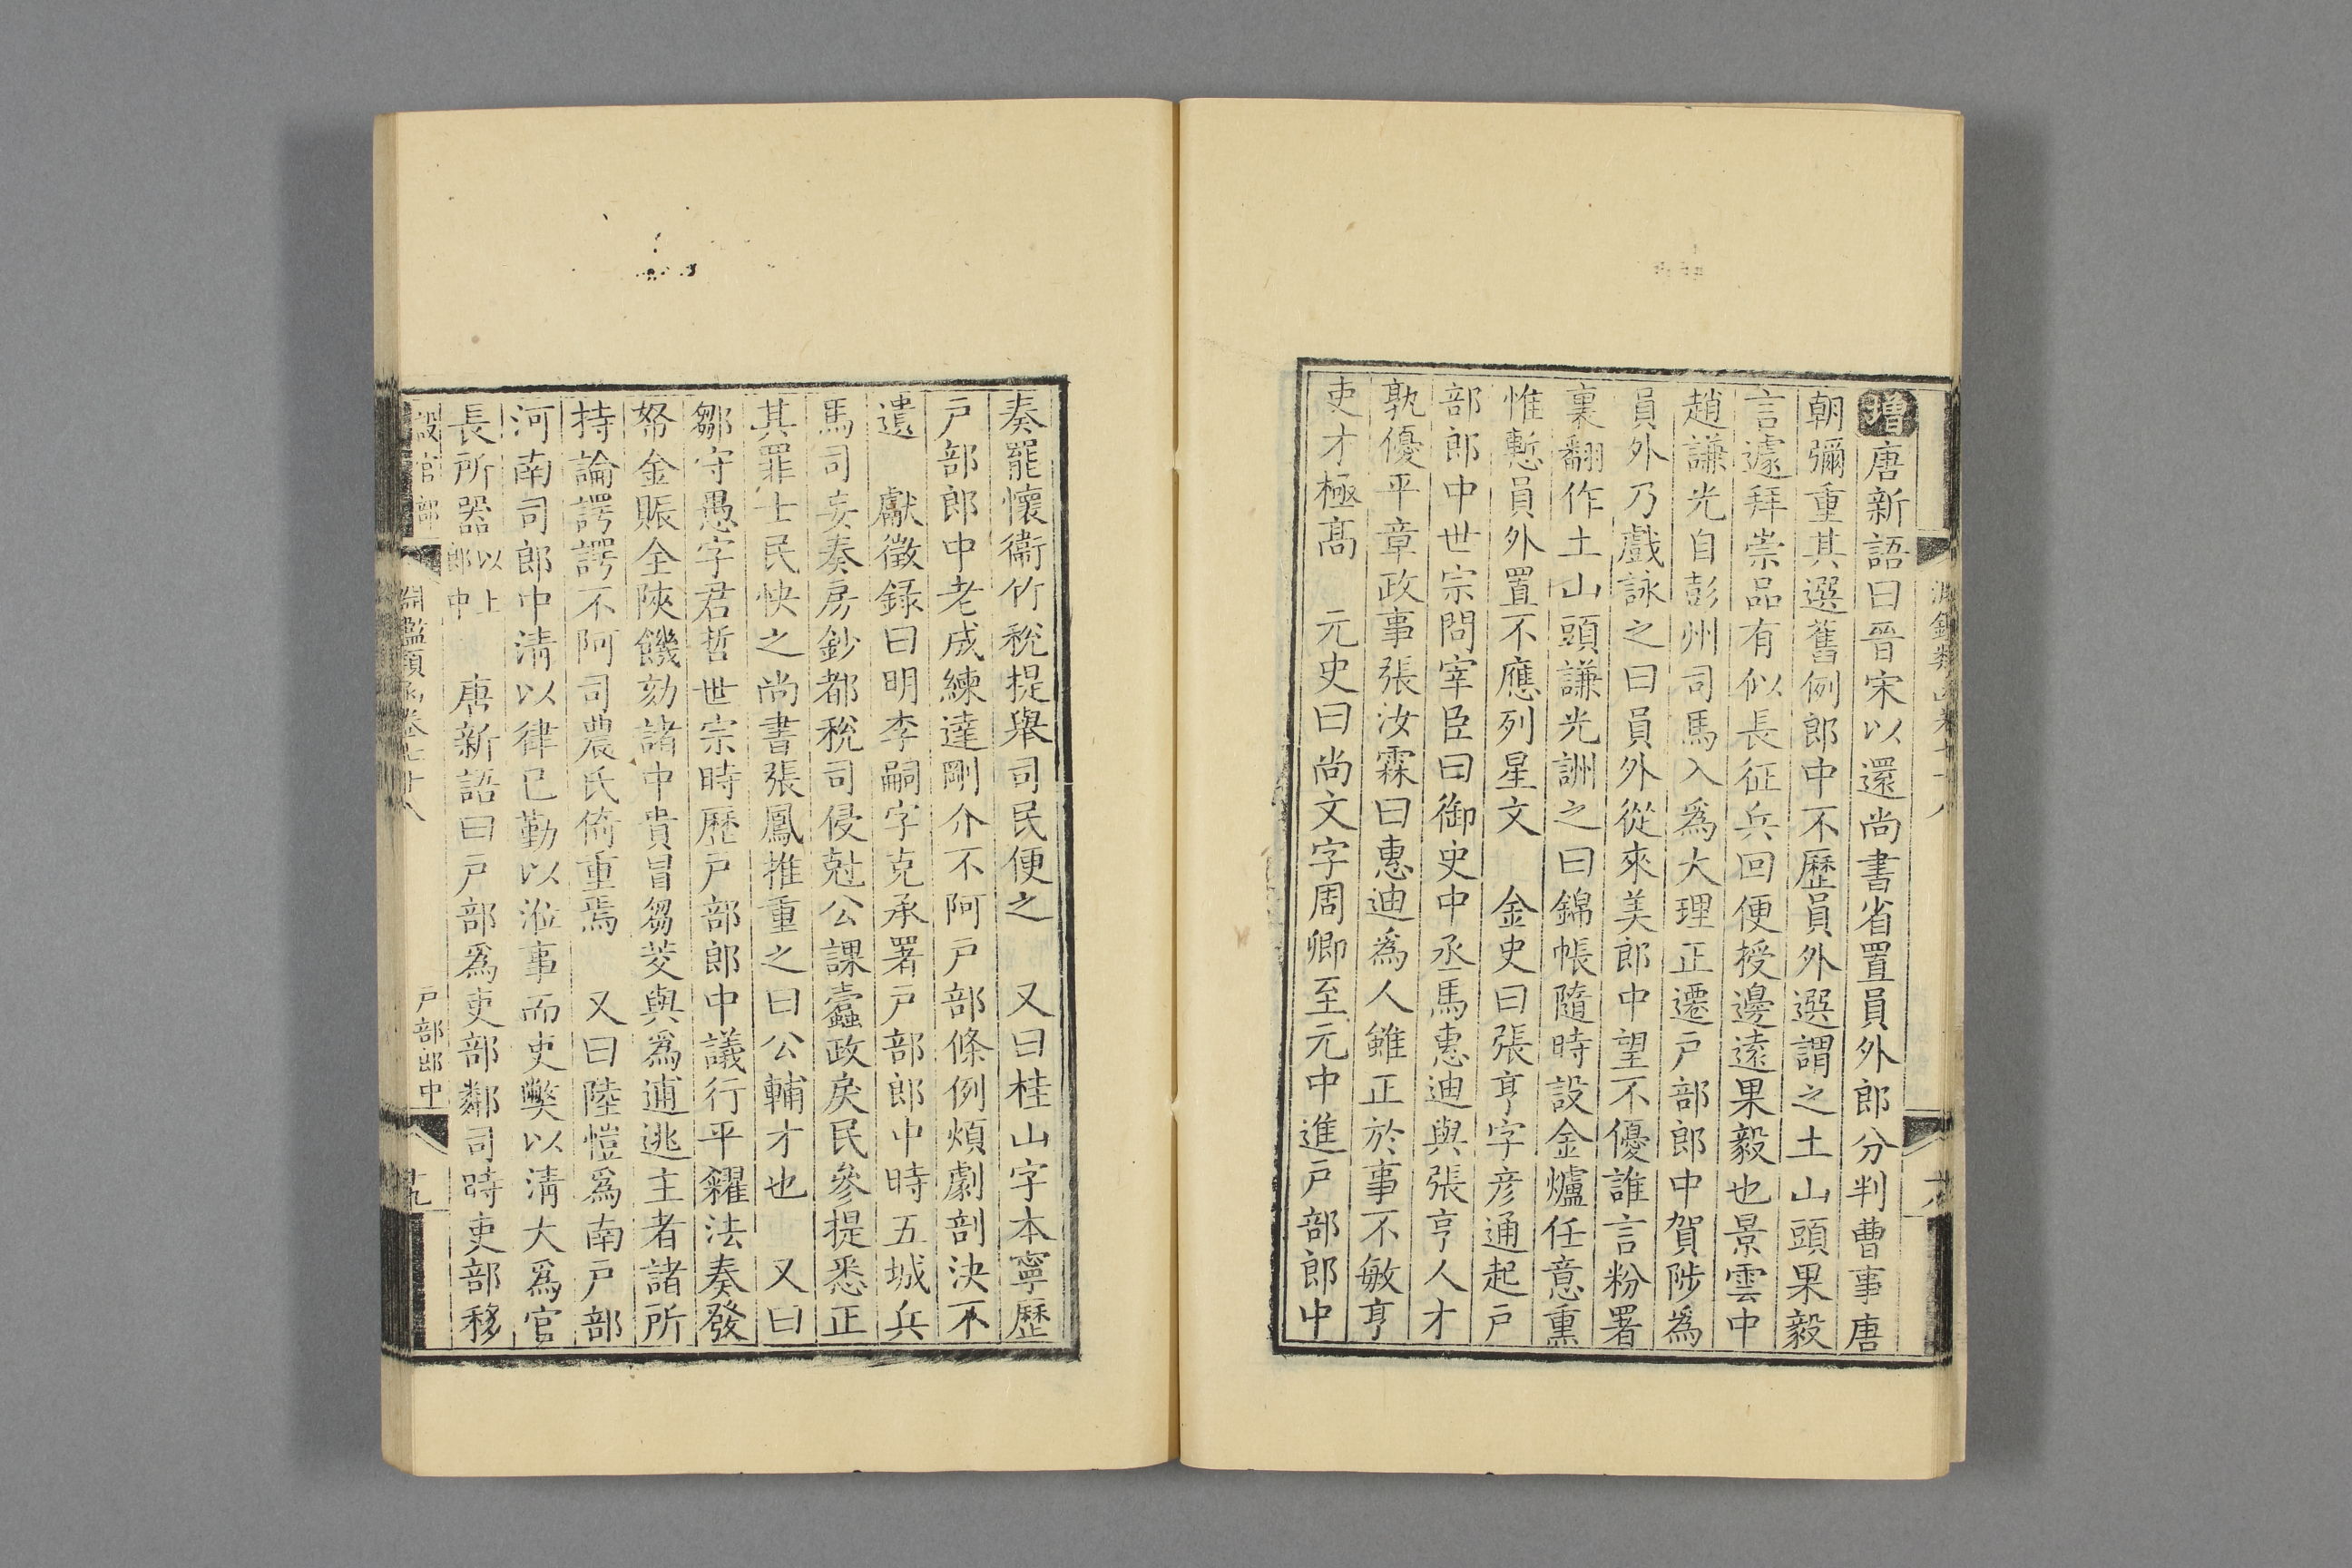 增唐新語曰晉宋以還尚書省置員外郎分判曹事唐
朝彌重其選舊例郎中不歷員外選謂之土山頭果毅
言遽拜崇品有似長征兵回便授邊遠果毅也景雲中
趙謙光自彭州司馬入爲大理正遷戸部郎中賀陟爲
員外乃戲詠之曰員外從來美郎中望不優誰言粉署
裏翻作土山頭謙光詶之曰錦帳隨時設金爐任意熏
惟慙員外置不應列星文　金史曰張亨字彦通起戸
部郎中世宗問宰臣曰御史中丞馬惠迪與張亨人才
孰優平章政事張汝霖曰惠迪爲人雖正於事不敏亨
吏才極高　元史曰尚文字周卿至元中進戸部郎中
奏罷懷衞竹稅提舉司民便之　又曰桂山字本寧歷
戸部郎中老成練達剛介不阿戸部條例煩劇剖決不
遺　獻徵録曰明李嗣字克承署戸部郎中時五城兵
馬司妄奏房鈔都稅司侵尅公課蠧政戾民參提悉正
其罪士民快之尚書張鳳推重之曰公輔才也　又曰
鄒守愚字君哲世宗時歷戸部郎中議行平糴法奏發
帑金賑全陜饑劾諸中貴冒芻茭與爲逋逃主者諸所
持論諤諤不阿司農氏倚重焉　又曰陸愷爲南戸部
河南司郎中淸以律已勤以涖事而吏獘以淸大爲官
長所器以上郎中　唐新語曰戸部爲吏部鄰司時吏部移
設官部
淵鑑類函卷七十八
戸部郎中
十九